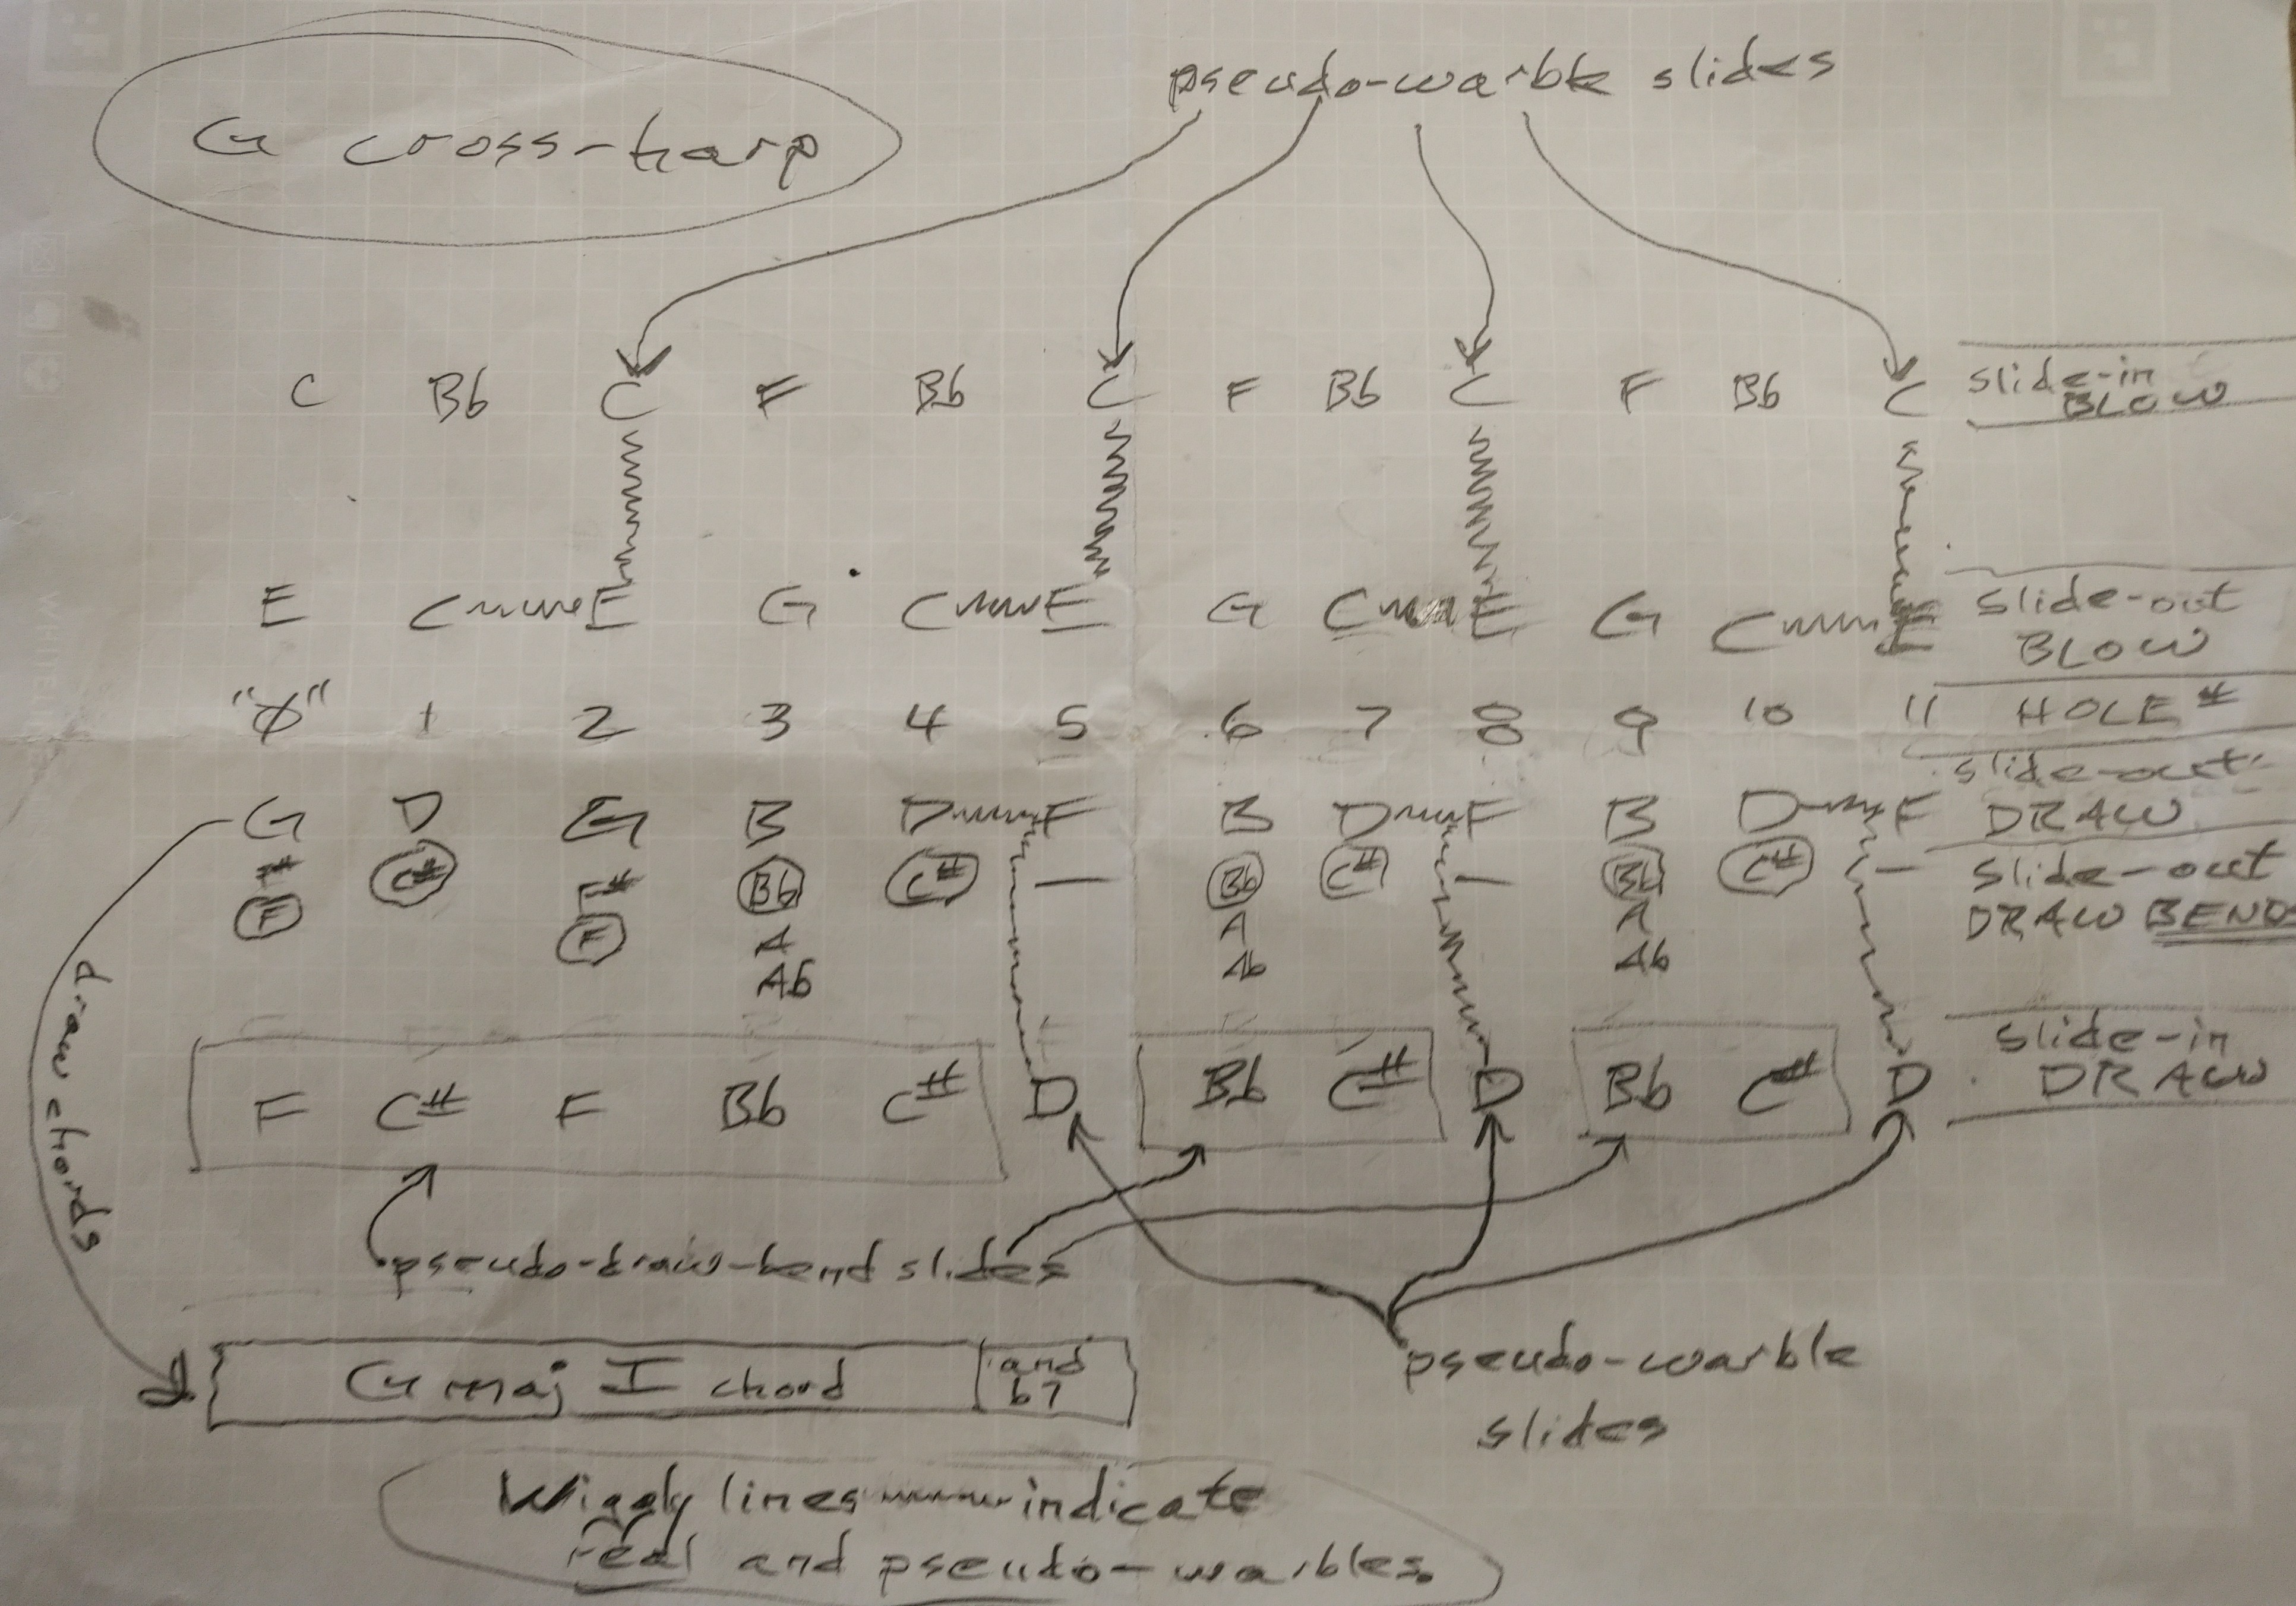 G cross-harp
pseudo-warble slides
C Bb C F Bb C F Bb C F Bb C slide-in BLOW
E C E G C E G C E G C E slide-out BLOW
"Ø" 1 2 3 4 5 6 7 8 9 10 11 HOLE #
G D G B D F B D F B D F slide-out DRAW
# C# F# Bb C# — Bb C# — Bb C# — slide-out
F F A A A DRAW BENDS
Ab Ab Ab
F C# F Bb C# D Bb C# D Bb C# D slide-in DRAW
draw chords
pseudo-draw-bend slides
G maj I chord and b7
pseudo-warble
slides
Wiggly lines indicate
real and pseudo-warbles.